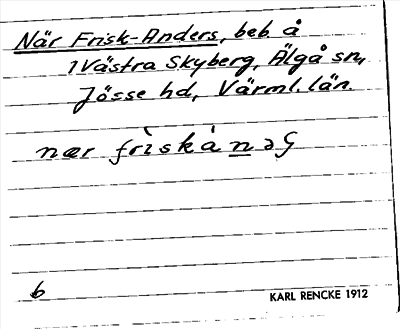 När Frisk-Anders, beb. å
1 Västra Skyberg, Älgå sn,
Jösse hd, Värml. län.
nær friskànəG
b
KARL RENCKE 1912